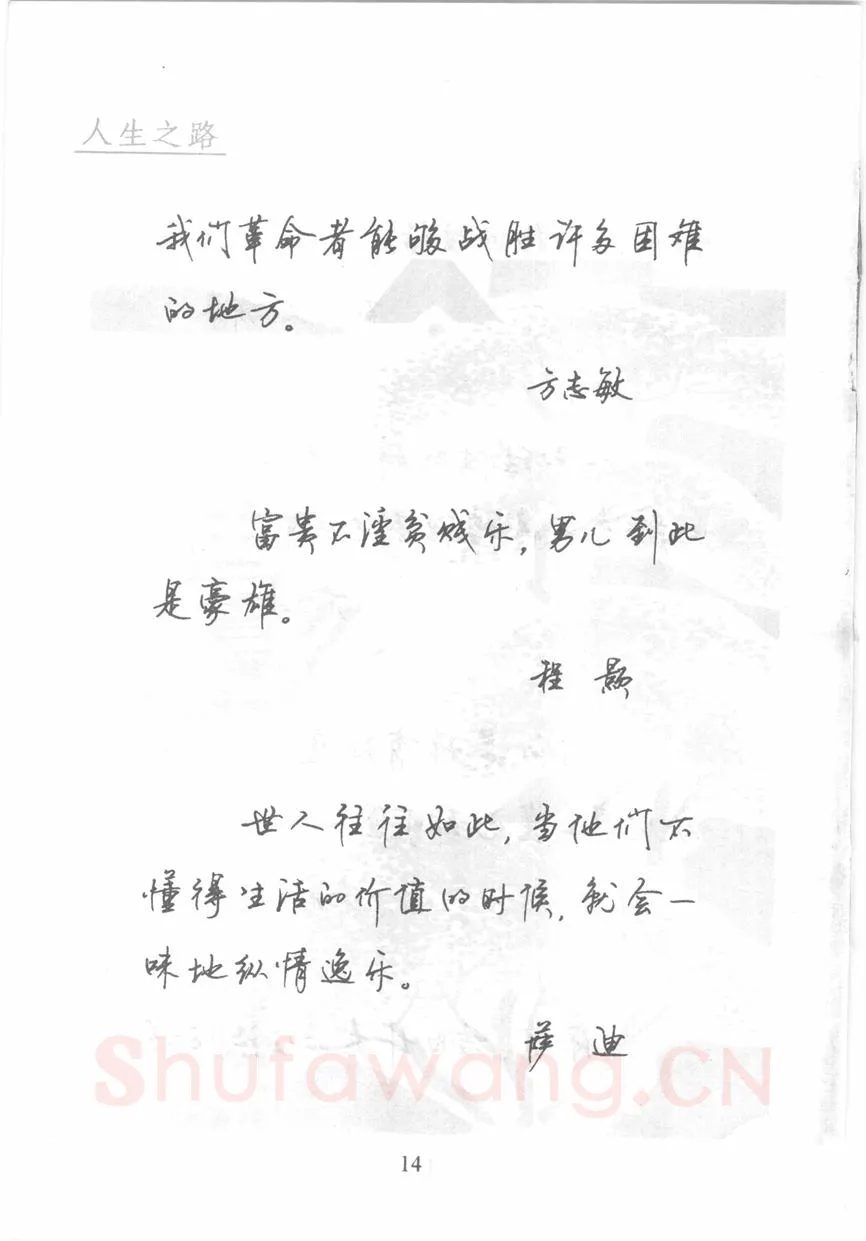 人生之路
我们革命者能够战胜许多困难
的地方。
方志敏
富贵不淫贫贱乐，男儿到此
是豪雄。
程 颢
世人往往如此，当他们不
懂得生活的价值的时候，就会一
味地纵情逸乐。
萨 迪
Shufawang.CN
14